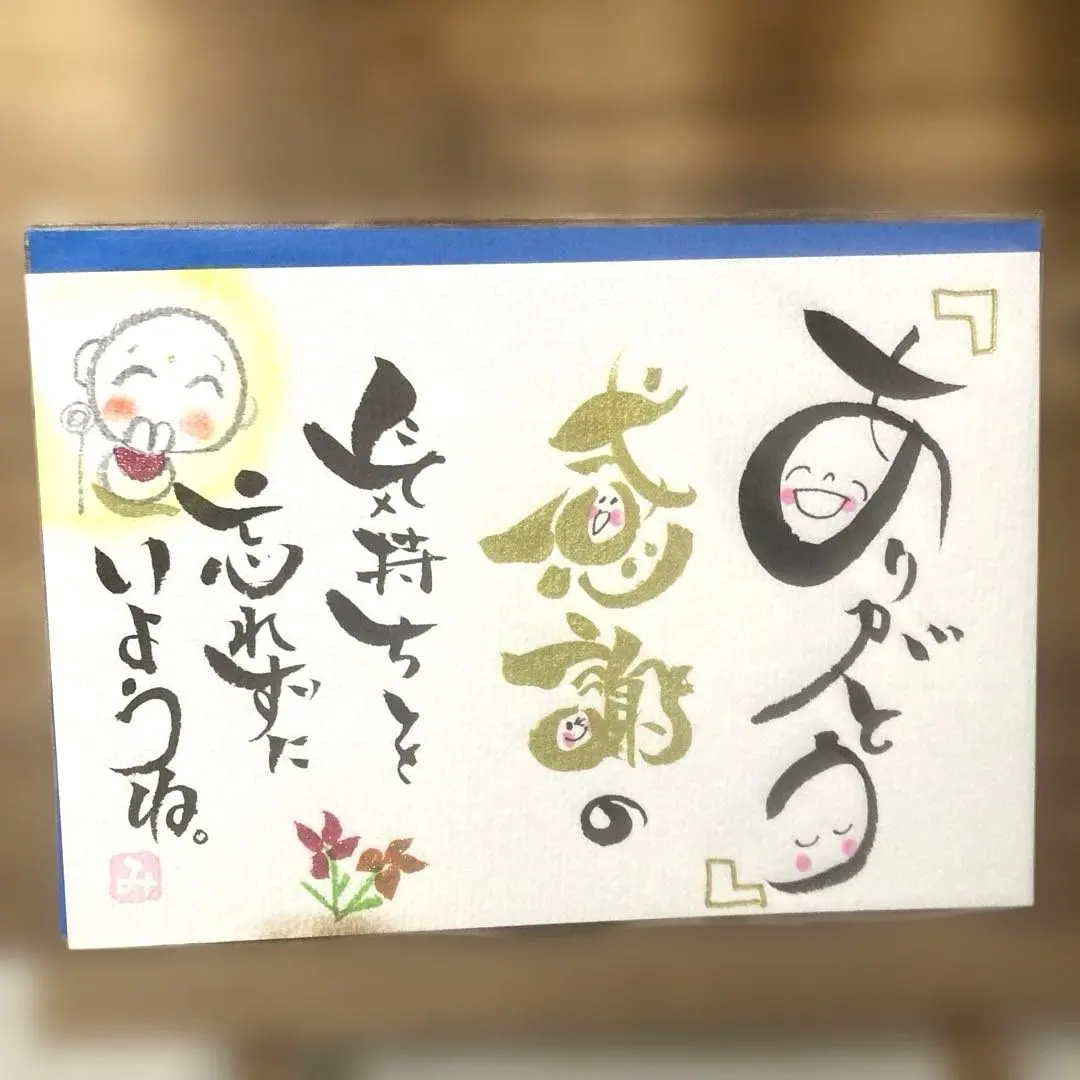 『ありがとう』
感謝の
気持ちを
忘れずに
いようね。
み